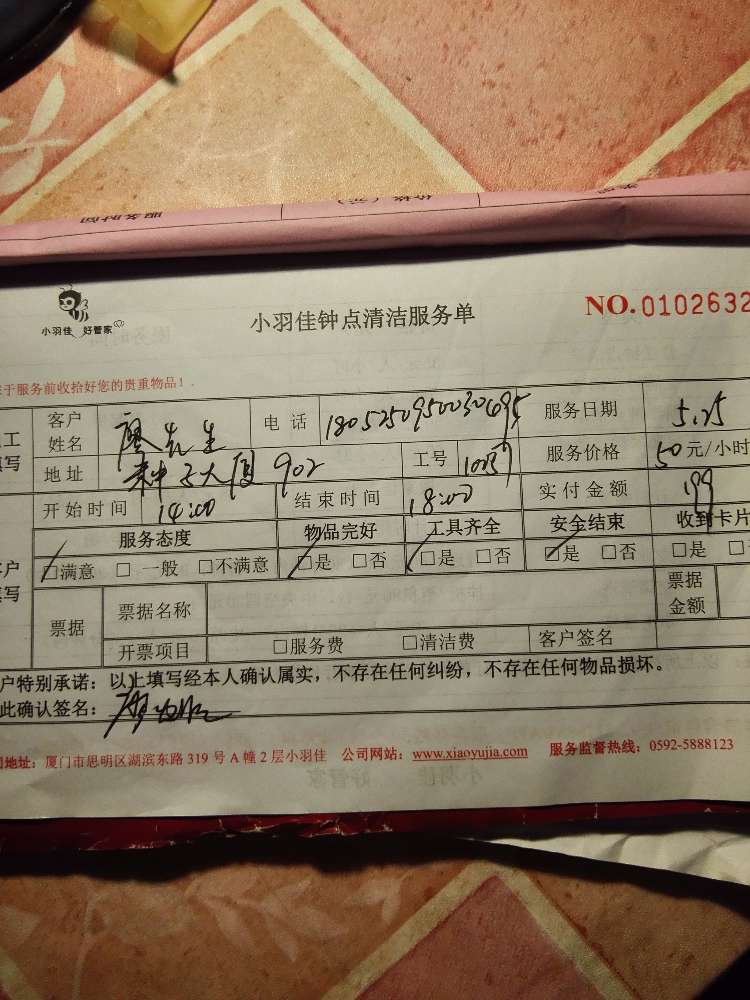 小羽佳 好管家
小羽佳钟点清洁服务单
NO.0102632
于服务前收拾好您的贵重物品！
工 客户姓名 廖先生 电话 服务日期 5.25
填写 地址 902 工号 服务价格 50元/小时
开始时间 14:00 结束时间 18:00 实付金额 199
服务态度 物品完好 工具齐全 安全结束 收到卡片
户 □满意 □一般 □不满意 □是 □否 □是 □否 □是 □否 □是 □
写 票据 票据名称 票据金额
开票项目 □服务费 □清洁费 客户签名
户特别承诺：以上填写经本人确认属实，不存在任何纠纷，不存在任何物品损坏。
此确认签名：
地址：厦门市思明区湖滨东路 319 号 A 幢 2 层小羽佳 公司网站：www.xiaoyujia.com 服务监督热线：0592-5888123